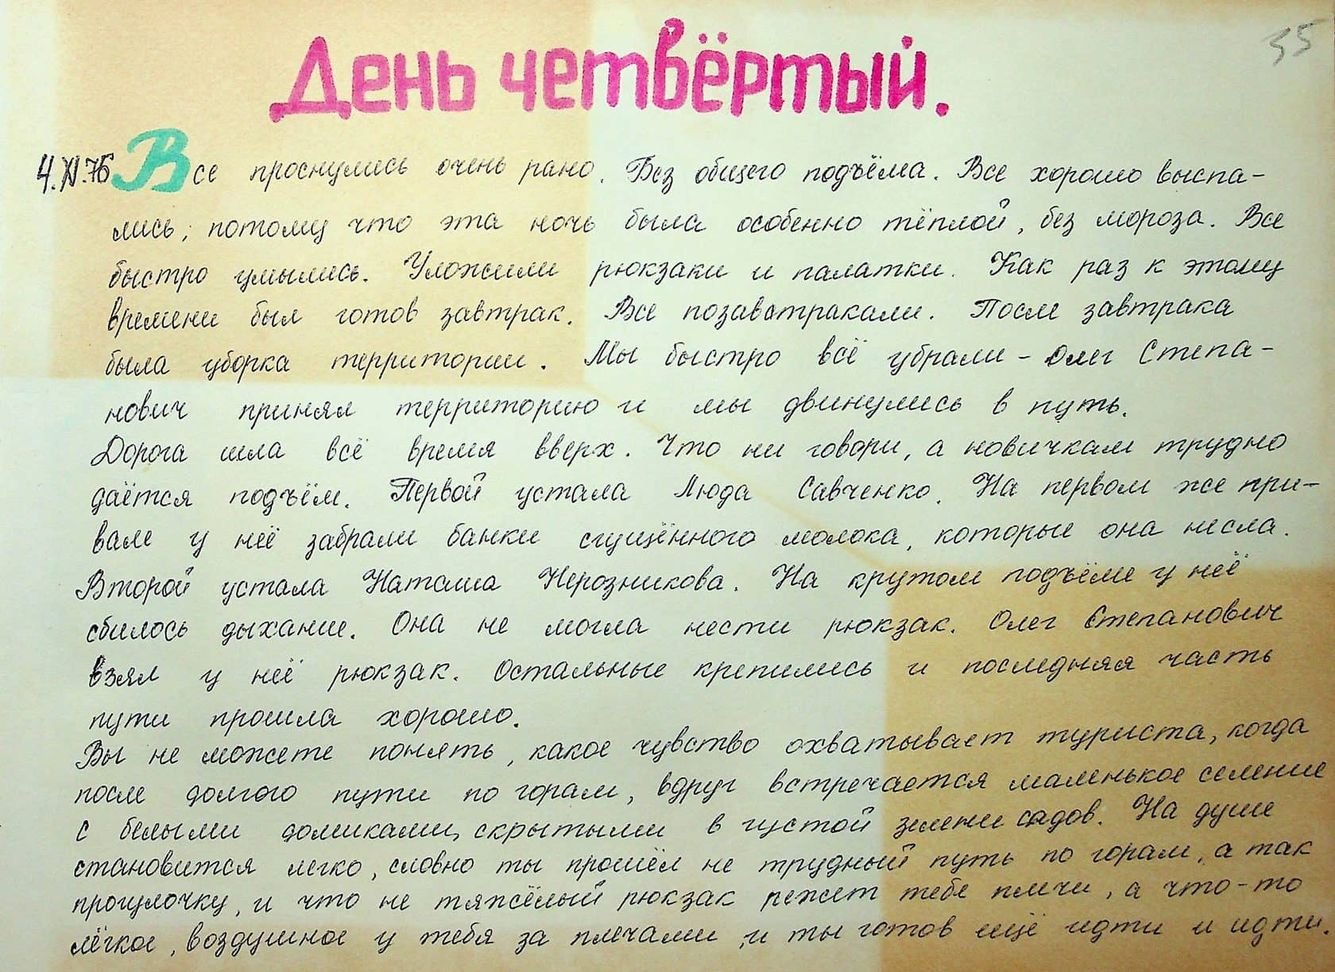 35
День четвёртый.
4.XI.75 Все проснулись очень рано. Без общего подъёма. Все хорошо выспа-
лись, потому что эта ночь была особенно тёплой, без мороза. Все
быстро умылись. Уложили рюкзаки и палатки. Как раз к этому
времени был готов завтрак. Все позавтракали. После завтрака
была уборка территории. Мы быстро всё убрали - Олег Степа-
нович принял территорию и мы двинулись в путь.
Дорога шла всё время вверх. Что ни говори, а новичкам трудно
даётся подъём. Первой устала Люда Савченко. На первом же при-
вале у неё забрали банки сгущённого молока, которые она несла.
Второй устала Наташа Нерозникова. На крутом подъёме у неё
сбилось дыхание. Она не могла нести рюкзак. Олег Степанович
взял у неё рюкзак. Остальные крепились и последняя часть
пути прошла хорошо.
Вы не можете понять, какое чувство охватывает туриста, когда
после долгого пути по горам, вдруг встречается маленькое селение
с белыми домиками, скрытыми в густой зелени садов. На душе
становится легко, словно ты прошёл не трудный путь по горам, а так
прогулочку, и что не тяжёлый рюкзак режет тебе плечи, а что-то
лёгкое, воздушное у тебя за плечами, и ты готов ещё идти и идти.